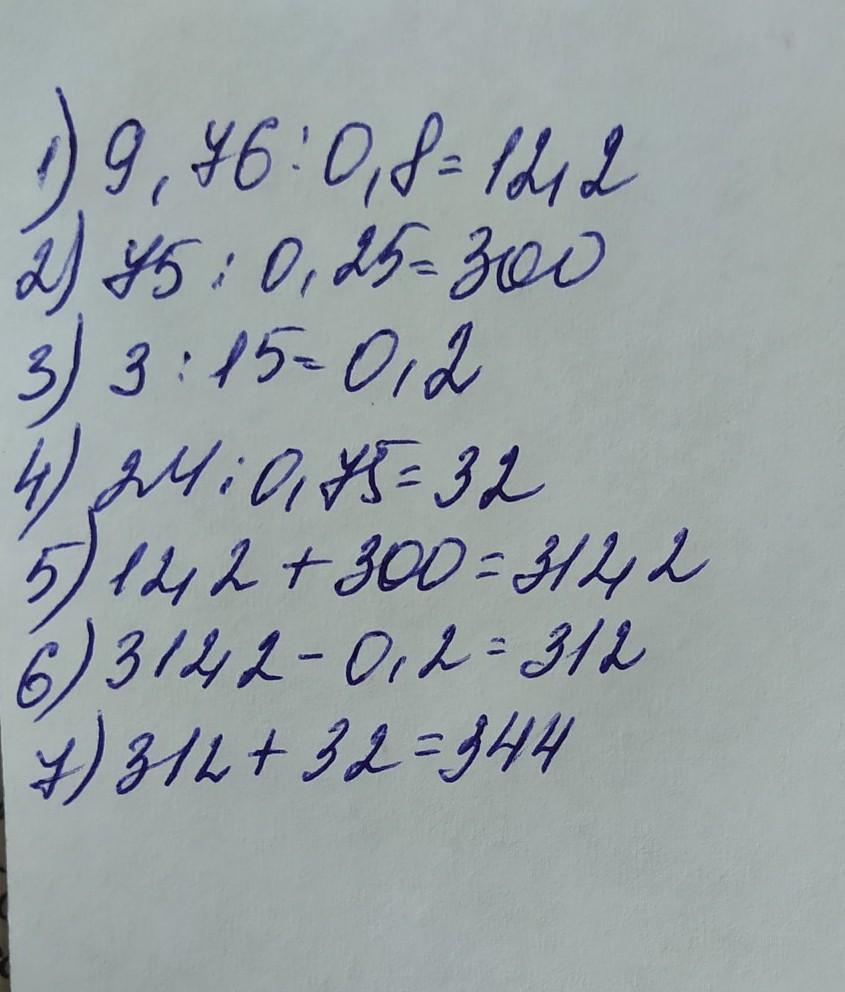 1) 9,76:0,8=12,2
2) 75:0,25=300
3) 3:15=0,2
4) 24:0,75=32
5) 12,2+300=312,2
6) 312,2-0,2=312
7) 312+32=344